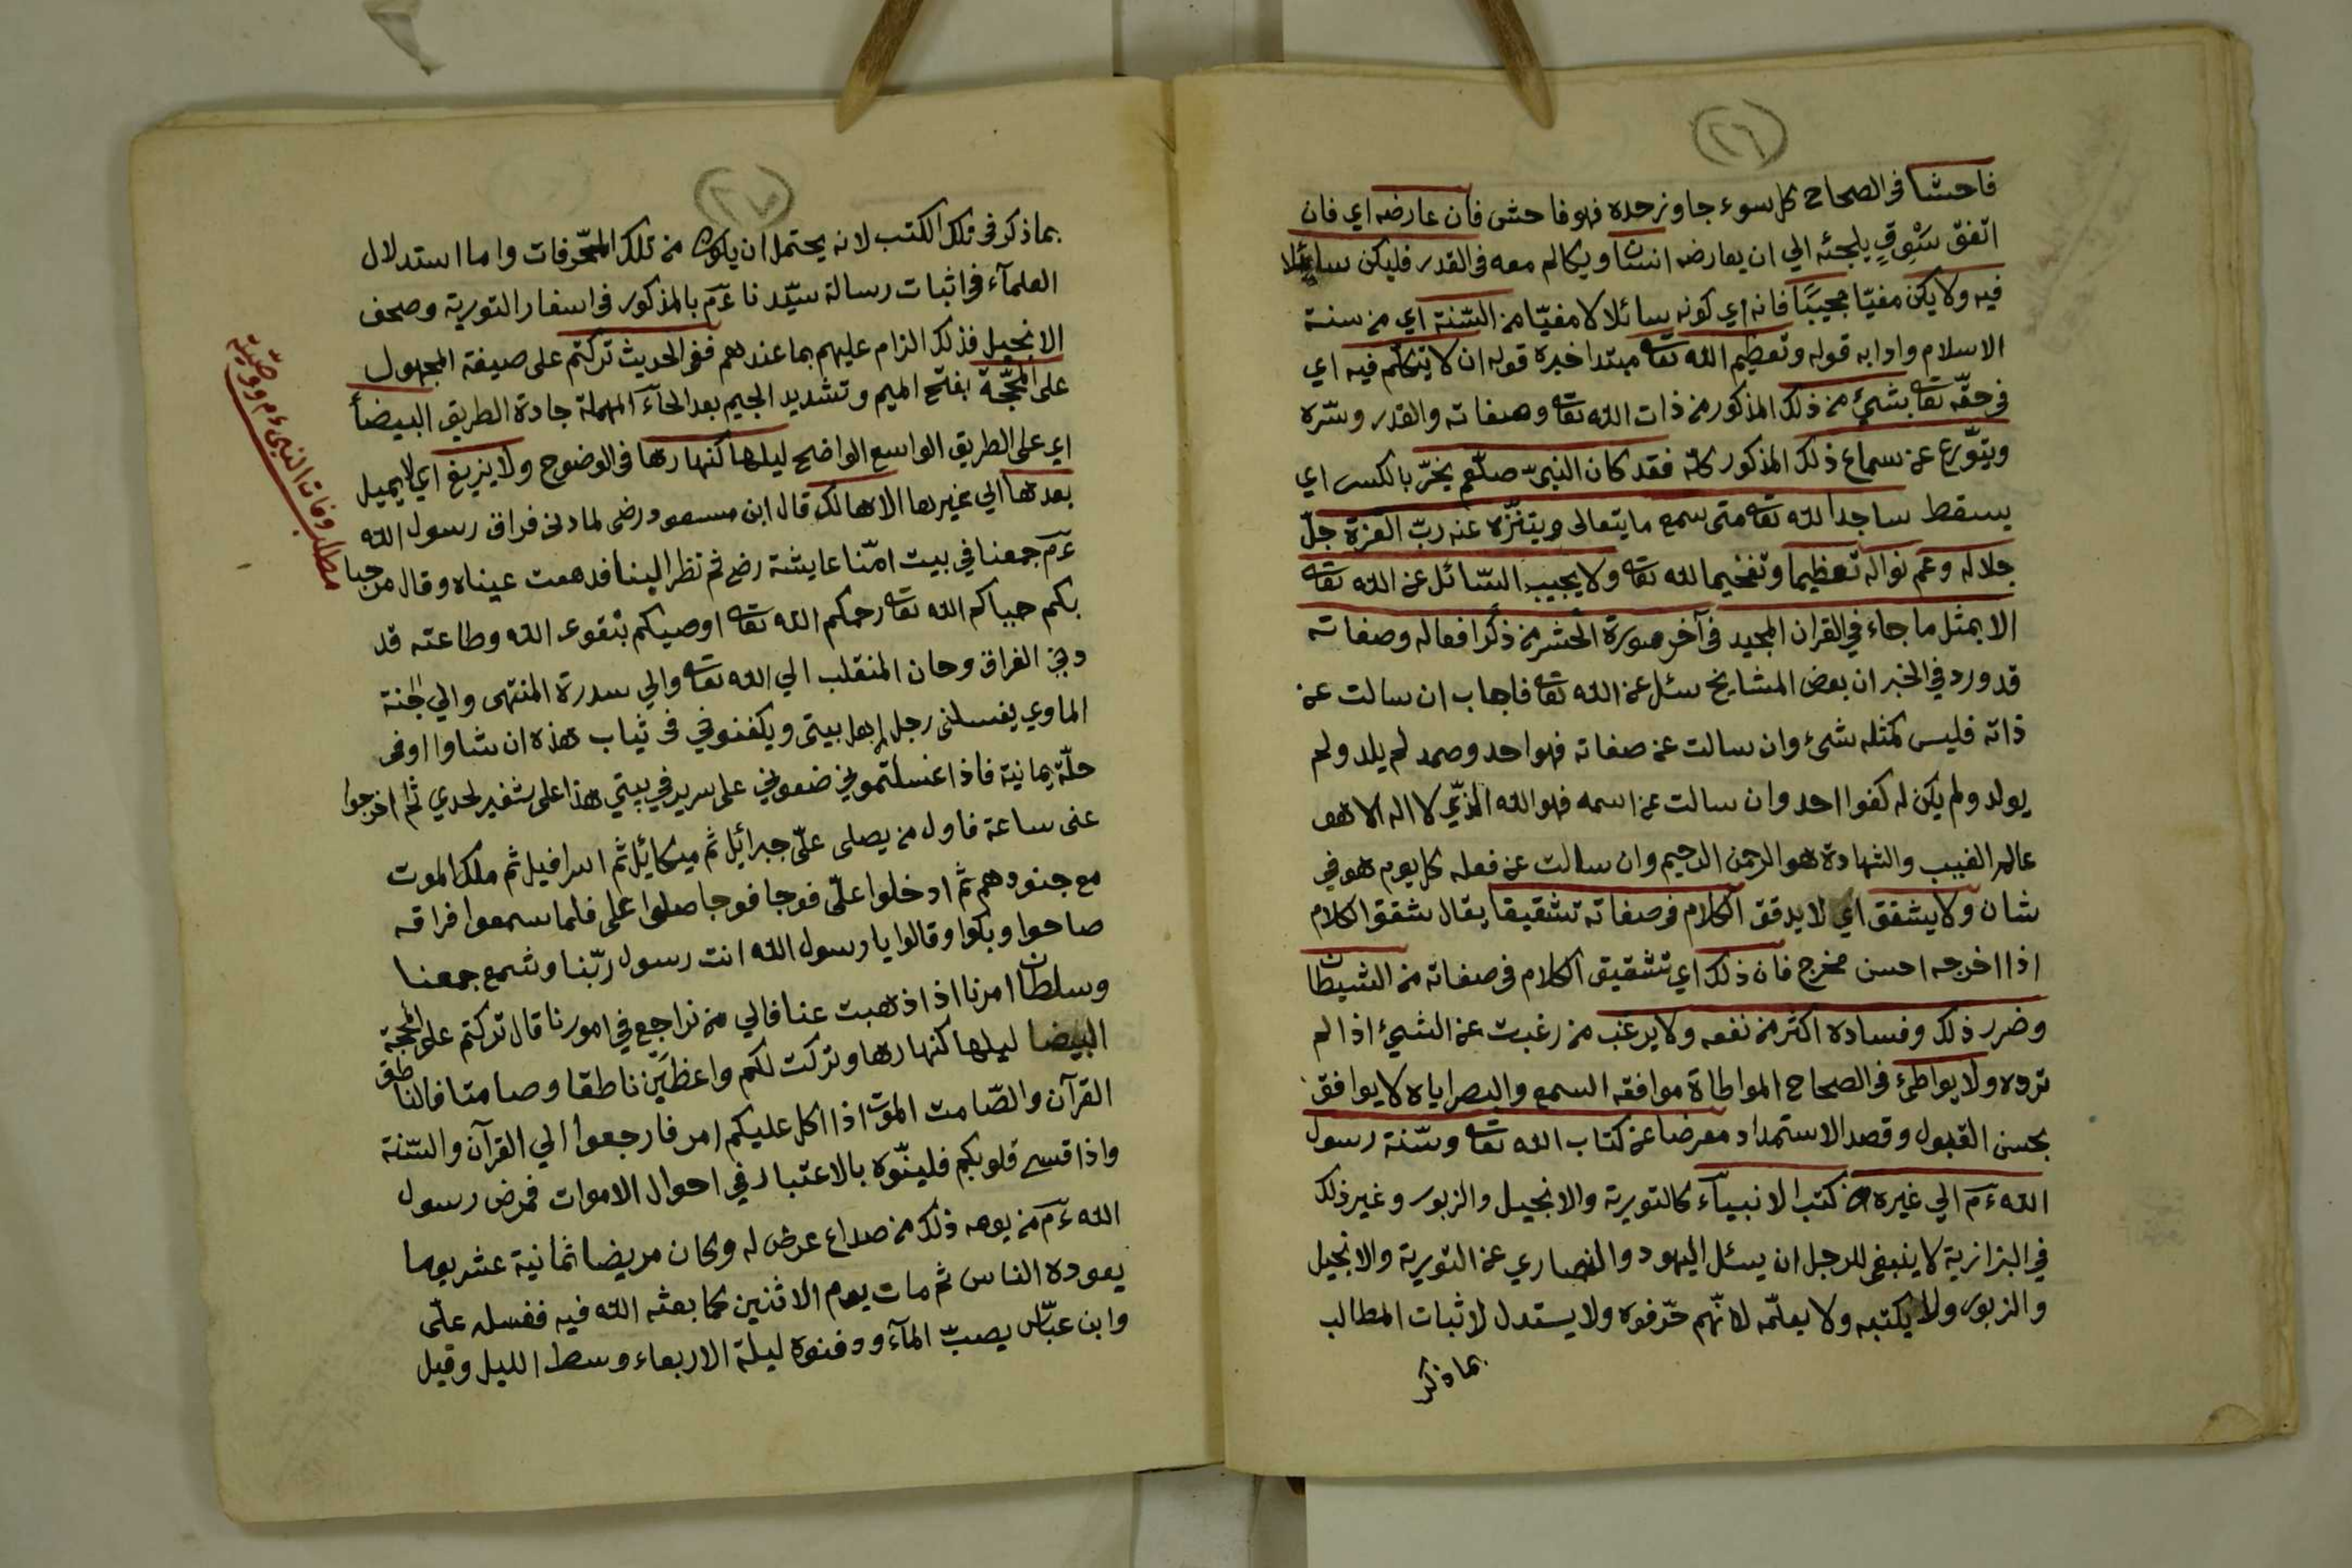 (٢٦)
فاحشا فى الصحاح كل سوء جاوز حده فهو فاحش فان عارضه اي فان
اتفق سَوْقٍ يلجئه الي ان يعارضه انسان ويكالم معه فى القدر فليكن سائلا
فيه ولا يكن مفتيا مجيبًا فانه اي كونه سائلا لا مفتيا من السّنة اي من سنة
الاسلام وادابه قوله وتعظيم الله تعا مبتدا خبره قوله ان لا يتكلم فيه اي
فى حقّه تعا بشيئ من ذلك المذكور من ذات الله تعا وصفاته والقدر وسّره
ويتوّرع عن سماع ذلك المذكور كله فقد كان النبىّ صلّعم يخرّ بالكسر اي
يسقط ساجدا لله تعا متى سمع ما يتعالى ويتنزّه عنه ربّ العزة جلّ
جلاله وعم نواله تعظيما وتفخيما لله تعا ولا يجيب السّائل عن الله تعا
الا بمثل ما جاء في القران المجيد فى آخر سورة الحشر من ذكر افعاله وصفاته
قد ورد في الخبر ان بعض المشايخ سئل عن الله تعا فاجاب ان سالت عن
ذاته فليس كمثله شئ وان سالت عن صفاته فهو احد وصمد لم يلد ولم
يولد ولم يكن له كفوا احد وان سالت عن اسمه فهو الله الذّي لا اله الا هو
عالم الغيب والشهادة هو الرحمن الرحيم وان سالت عن فعله كل يوم هو في
شان ولا يشقق اي لا يدقق الكلام فى صفاته تشقيقا يقال شقق الكلام
اذا اخرجه احسن مخرج فان ذلك اي تشقيق الكلام فى صفاته من الشيطان
وضرر ذلك وفساده اكثر من نفعه ولا يرغب من رغبت عن الشيئ اذا لم
ترده ولا يواطئ فى الصحاح المواطاة موافقه السمع والبصر اياه لا يوافق
بحسن القبول وقصد الاستمداد معرضا عن كتاب الله تعا وسّنة رسول
الله ءم الي غيره من كتب الانبياء كالتورية والانجيل والزبور وغير ذلك
في البزازية لا ينبغى للرجل ان يسئل اليهود والنصاري عن التورية والانجيل
والزبور ولا يكتبه ولا يعلّمه لانّهم حّرفوه ولا يستدل لاثبات المطالب
بما ذكر
(٢٧)
بما ذكر فى تلك الكتب لانه يحتمل ان يكون من تلك المحّرفات واما استدلال
العلمآء فى اثبات رسالة سيّدنا ءم بالمذكور فى اسفار التورية وصحف
الانجيل فذلك الزام عليهم بما عندهم ففى الحديث تركتم على صيغة المجهول
على المحجّة بفتح الميم وتشديد الجيم بعد الحآء المهملة جادة الطريق البيضأ
اي على الطريق الواسع الواضح ليلها كنهارها فى الوضوح ولا يزيغ اي لا يميل
بعدها الي غيرها الا هالك قال ابن مسعود رضى لما دنى فراق رسول الله
ءم جمعنا في بيت امّنا عايشة رضى ثم نظر الينا فدمعت عيناه وقال مرحبا
بكم حياكم الله تعا رحمكم الله تعا اوصيكم بتقوى الله وطاعته قد
دنى الفراق وحان المنقلب الي الله تعا والي سدرة المنتهى والي جنة
الماوي يغسلنى رجل اهل بيتى ويكفنونى فى ثياب هذه ان شاوا او فى
حلّة يمانية فاذا غسلتموني ضعوني على سرير في بيتي هذا على شفير لحدي ثم اخرجوا
عنى ساعة فاول من يصلى علّى جبرائيل ثم ميكائيل ثم اسرافيل ثم ملك الموت
مع جنودهم ثم ادخلوا علّى فوجا فوجا صلوا على فلما سمعوا فراقه
صاحوا وبكوا وقالوا يا رسول الله انت رسول ربّنا وشمع جمعنا
وسلطان امرنا اذا ذهبت عنا فالي من نراجع في امورنا قال تركتم على المحجة
البيضا ليلها كنهارها وتركت لكم واعظَين ناطقا وصامتا فالناطق
القرآن والصّامت الموت اذا اكل عليكم امر فارجعوا الي القرآن والسّنة
واذا قسى قلوبكم فلينّوه بالاعتبار في احوال الاموات فمرض رسول
الله ءم من يومه ذلك من صداع عرض له وكان مريضا ثمانية عشر يوما
يعوده الناس ثم مات يوم الاثنين كما بعثه الله فيه فغسله علّى
وابن عبّاس يصبّ المآء ودفنوه ليلة الاربعاء وسط الليل وقيل
مطلب وفات النبى ءم ووصيّته